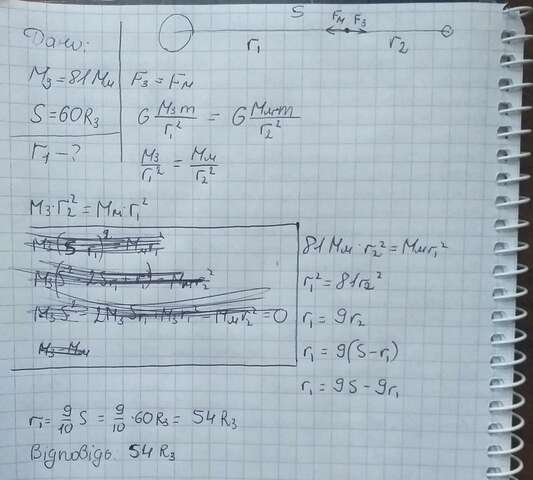 S
Fм Fз
r₁ r₂
Дано:
Mз = 81 Mм
S = 60Rз
r₁ - ?
Fз = Fм
G Mз m / r₁² = G Mм·m / r₂²
Mз / r₁² = Mм / r₂²
Mз · r₂² = Mм · r₁²
81 Mм · r₂² = Mм r₁²
r₁² = 81 r₂²
r₁ = 9 r₂
r₁ = 9(S - r₁)
r₁ = 9S - 9r₁
r₁ = 9/10 S = 9/10 · 60 Rз = 54 Rз
Відповідь: 54 Rз